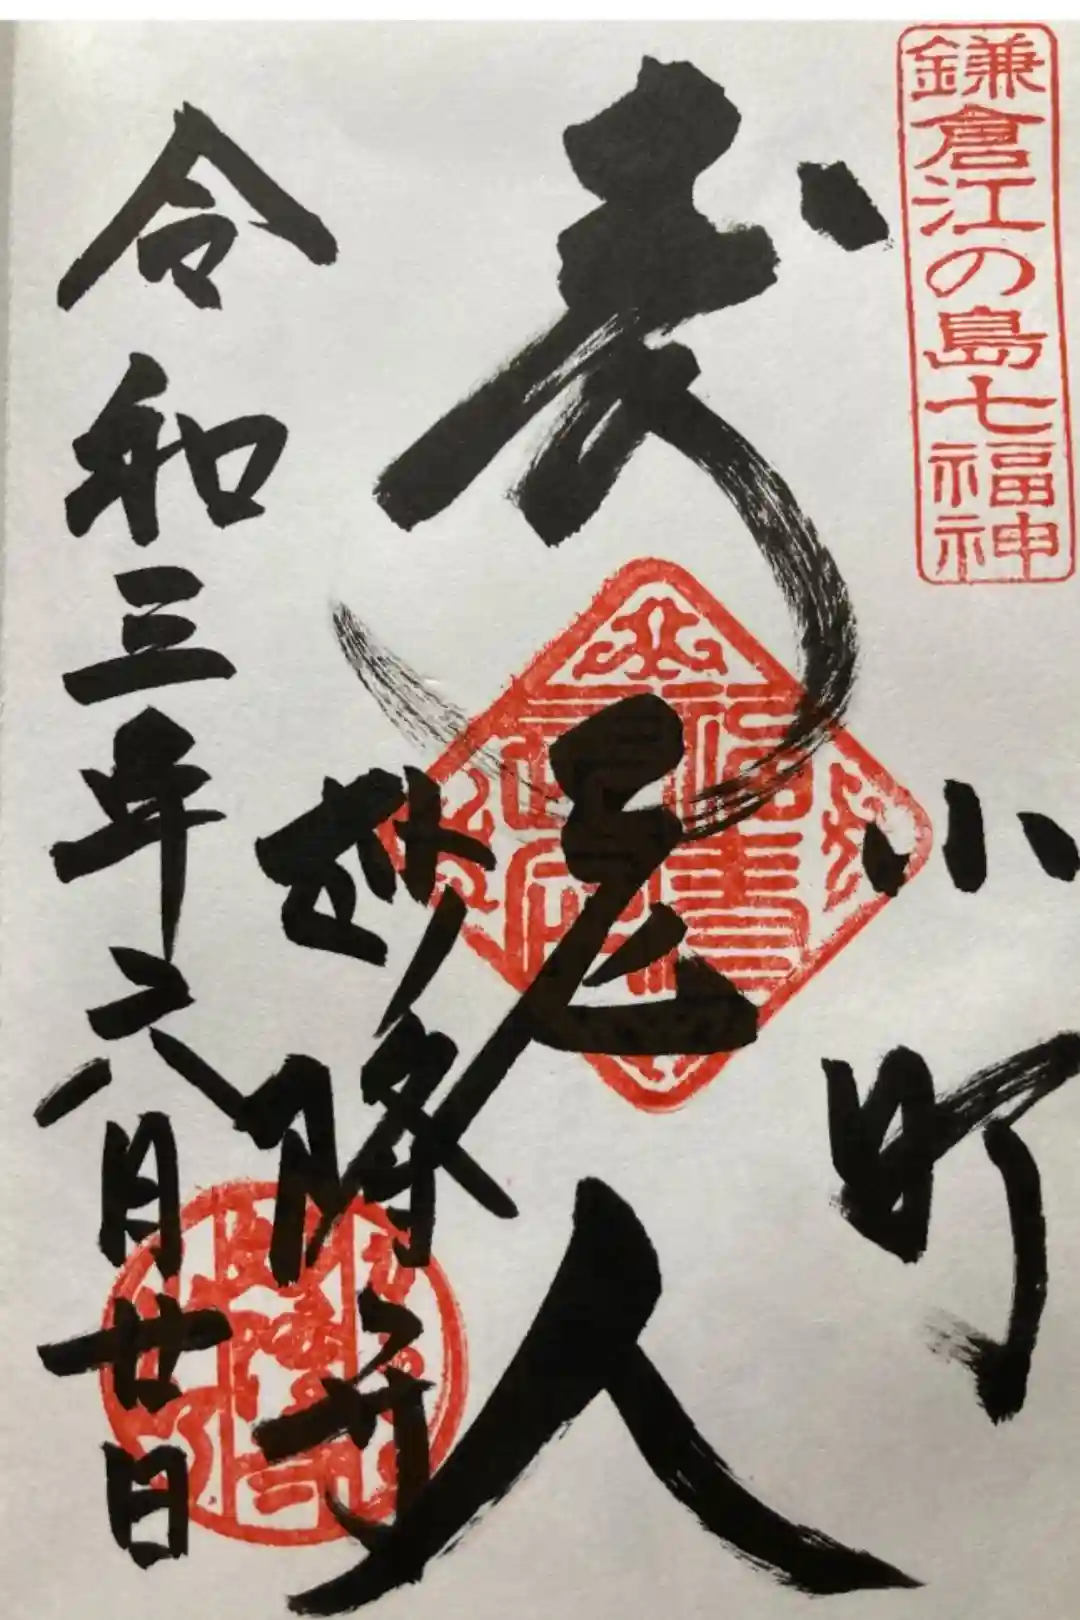 鎌倉江の島七福神
小町
寿老人
妙隆寺
令和三年六月廿日